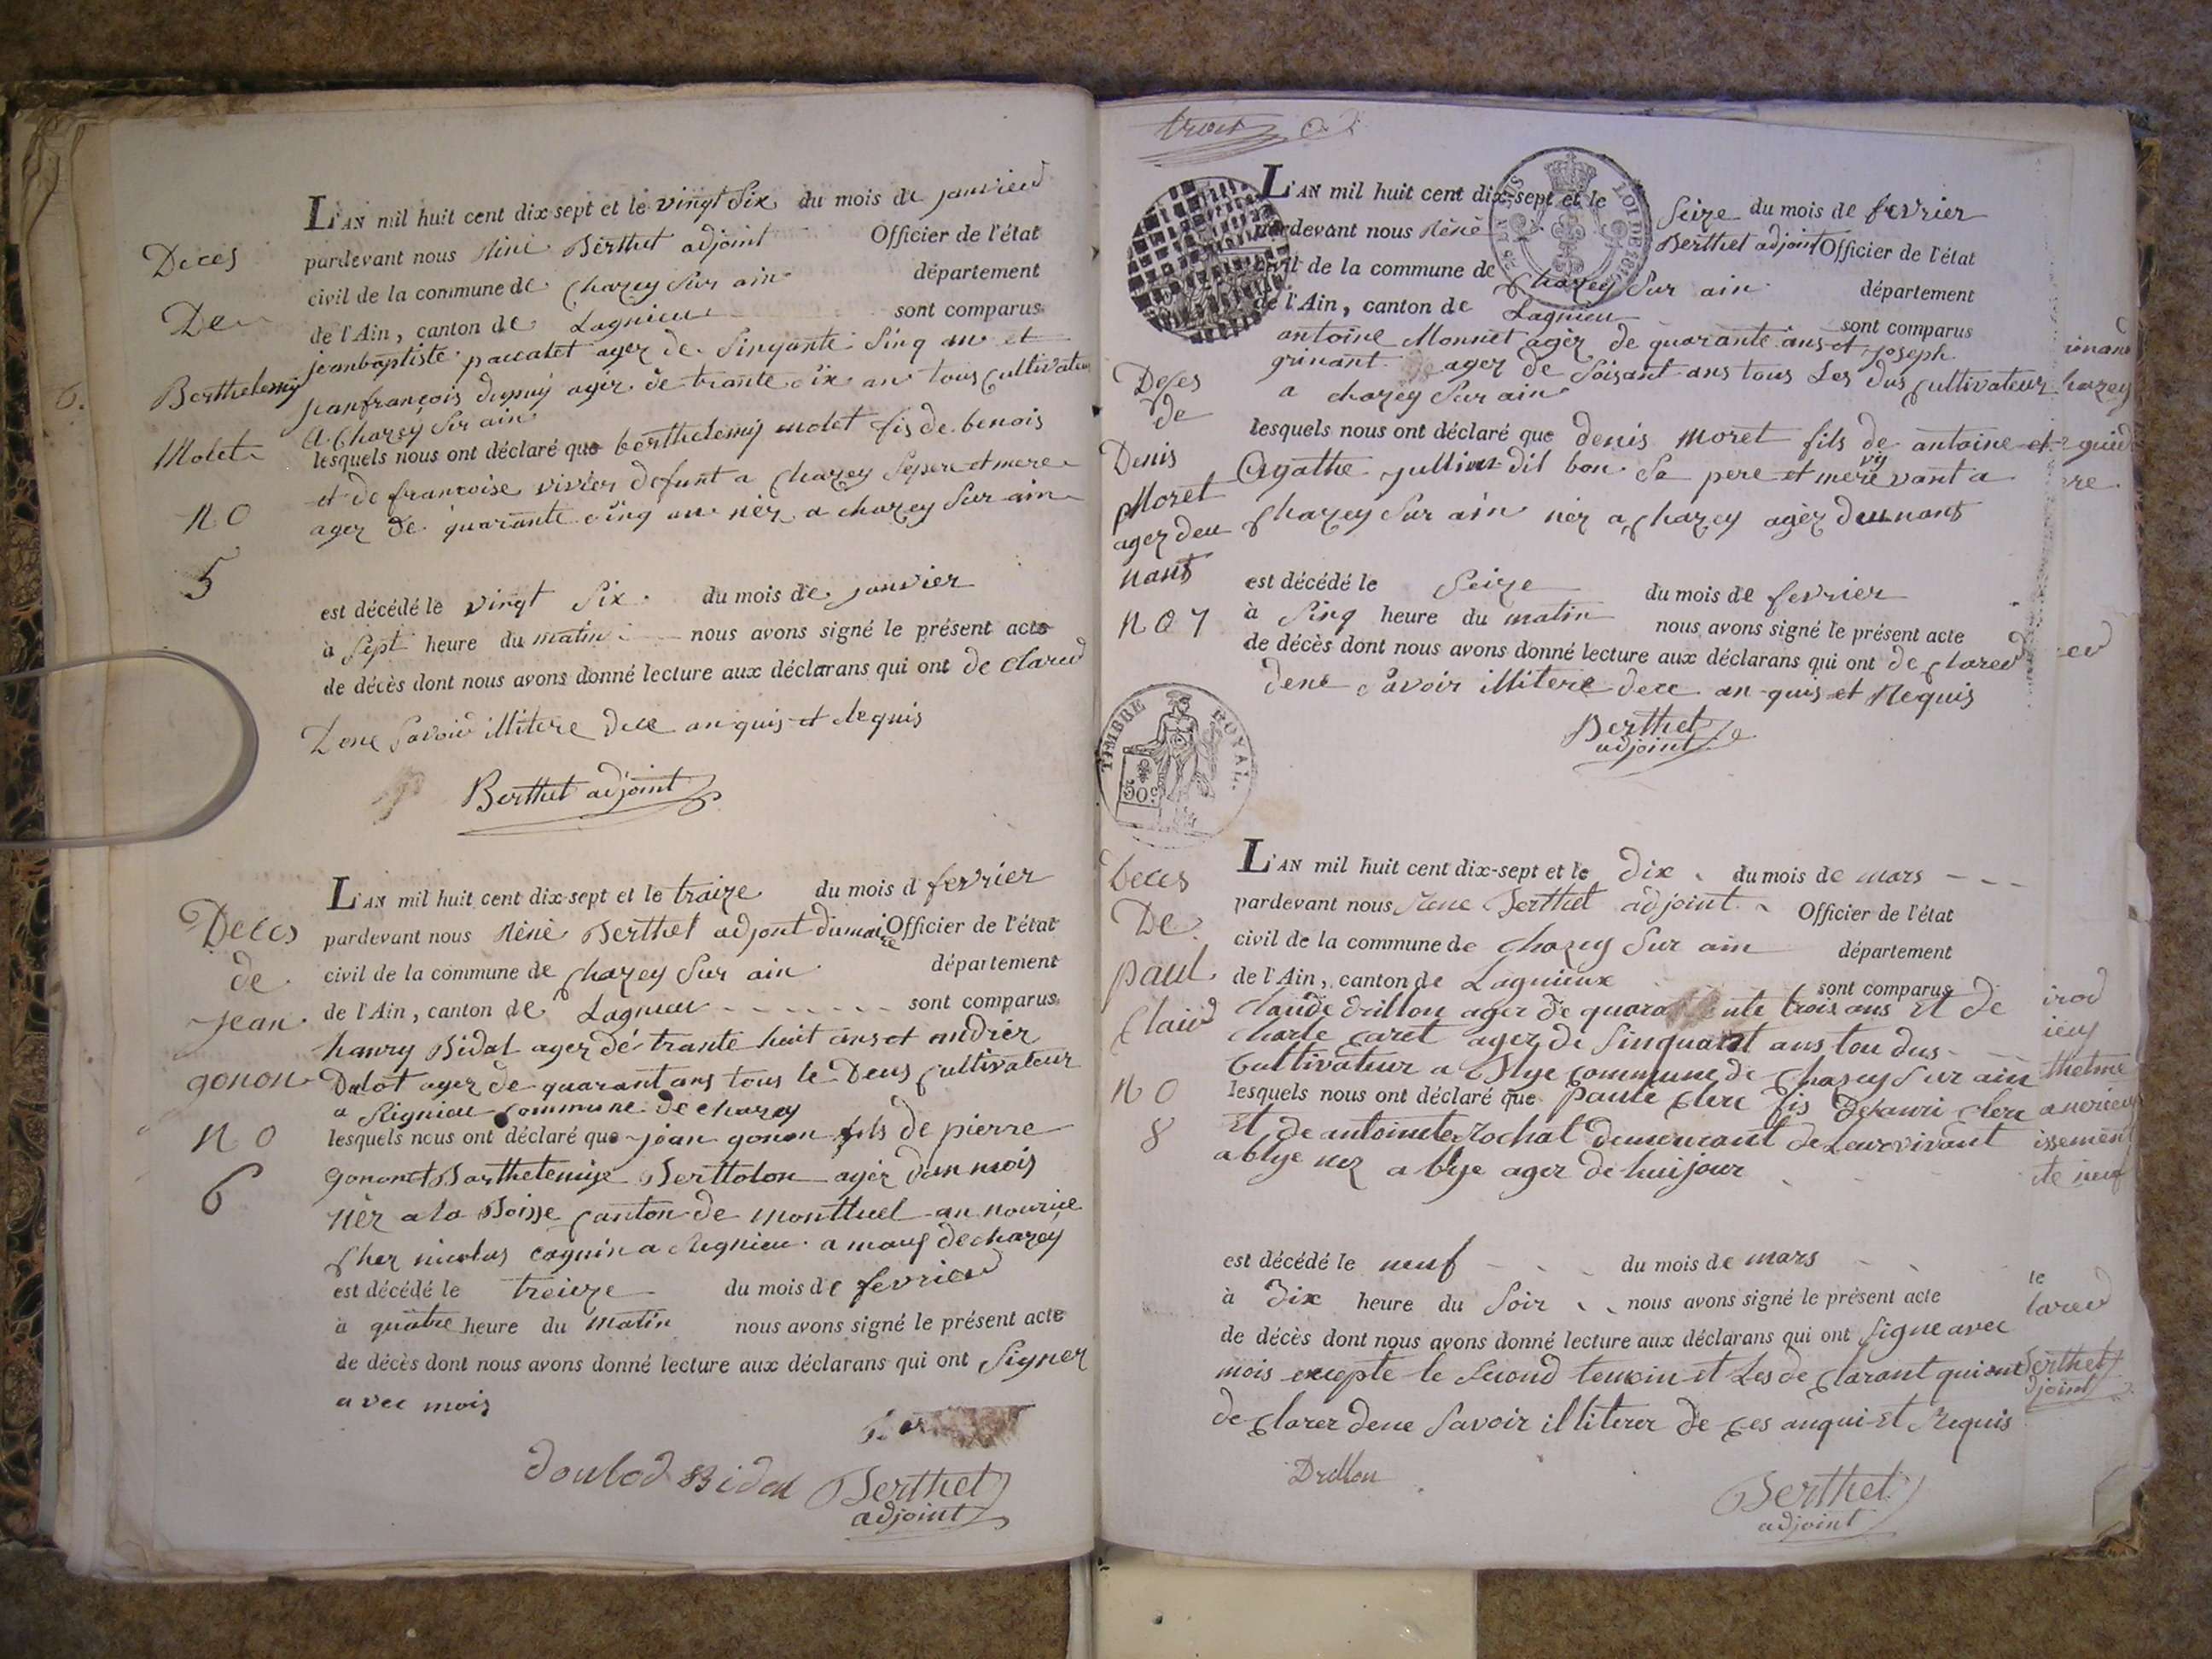 Deces
De
Berthelemy
Molet
N o
5
L'AN mil huit cent dix-sept et le vingt Six du mois de janvier
pardevant nous Réné Berthet adjoint Officier de l'état
civil de la commune de Chazey Sur ain département
de l'Ain, canton de Lagnieu sont comparus
jeanbaptiste paccalet agez de Sinqante Sinq an et
jeanfrançois dupuy agez de trante Six an tous Cultivateur
A Chazey Sur ain
lesquels nous ont déclaré que berthelemy molet fis de benois
et de francoise vivier defunt a Chazey Sepere et mere
agez de quarante cinq an néz a chazey Sur ain
est décédé le vingt Six du mois de janvier
à Sept heure du matin nous avons signé le présent acte
de décès dont nous avons donné lecture aux déclarans qui ont de clared
Dene Savoir illitere dece anquis et Requis
Berthet adjoint
Deces
de
Jean
gonon
N o
6
L'AN mil huit cent dix-sept et le traize du mois d fevrier
pardevant nous Réné Berthet adjout dumaire Officier de l'état
civil de la commune de Chazey Sur ain département
de l'Ain, canton de Lagnieu sont comparus
hanry Bidal agez dé trante huit ans et andrér
Dulot agez de quarant ans tous le Deus Cultivateur
a Rignieu Commune de chazey
lesquels nous ont déclaré que jean gonon fils de pierre
gonon et Barthelemye Berttolon agéz dun mois
néz a la Boisse Canton de montluel an nourice
Cher nicolas coguin a Rignieu a mauf de chazey
est décédé le treieze du mois de fevrier
à quatre heure du matin nous avons signé le présent acte
de décès dont nous avons donné lecture aux déclarans qui ont Signer
avec mois
doulod Bidal Berthet
adjoint
trois
L'AN mil huit cent dix-sept et le Seize du mois de fevrier
pardevant nous Réné Berthet adjoint Officier de l'état
civil de la commune de Chazey Sur ain département
de l'Ain, canton de Lagnieu sont comparus
antoine Monnet agéz de quarante ans et joseph
grinant agez de Soisant ans tous Les dus Cultivateur
a chazey Sur ain
Deces
de
Denis
Moret
agez deu
nans
N o 7
lesquels nous ont déclaré que denis Moret fils de antoine et
Agathe jullien dit bon Se pere et mere vivant a
Chazey Sur ain néz a Chazey agéz deunans
est décédé le Seize du mois de fevrier
à Sinq heure du matin nous avons signé le présent acte
de décès dont nous avons donné lecture aux déclarans qui ont de clared
dene Savoir illitere dece an quis et Requis
Berthet
adjoint
TIMBRE ROYAL
50c
Deces
De
paul
Claird
N o
8
L'AN mil huit cent dix-sept et le Dix du mois de mars
pardevant nous Réne Berthet adjoint Officier de l'état
civil de la commune de Chazey Sur ain département
de l'Ain, canton de Lagnieux sont comparus
Claude drillon agez de quarante trois ans Et de
Charle Caret agez de Sinquant ans tou dus
Cultivateur a Blye Commune de Chazey Sur ain
lesquels nous ont déclaré que Paule Clerc fis Dehanri Clerc
Et de antoinete Rochat demeurant de Leurvivant
a blye nez a blye agez de huijour
est décédé le neuf du mois de mars
à Dix heure du Soir nous avons signé le présent acte
de décès dont nous avons donné lecture aux déclarans qui ont Signe avec
mois excepte le Second temoin et Les de Clarant qui ont
de Clarer dene Savoir illiterer de Ces anqui Et Requis
Drillon
Berthet
adjoint